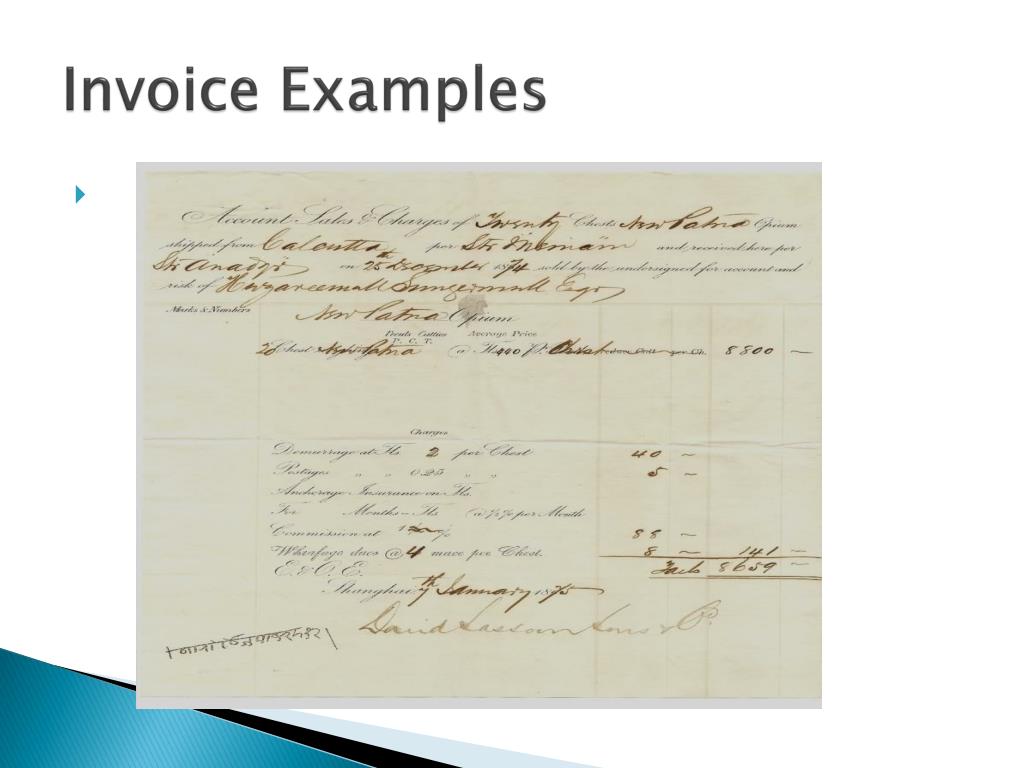 Invoice Examples
Account Sales & Charges of Twenty Chests New Patna Opium
shipped from Calcutta per Str and received here per
Str on 25th December 1874 sold by the undersigned for account and
risk of Esqr
Marks & Numbers
New Patna Opium
Peculs Catties Average Price
P. C. T.
20 Chest New Patna @ Tls 440 P. Chest per Ch. 8800 —
Charges
Demurrage at Tls. 2 per Chest 40 ~
Postages " " 0.25 " " 5 ~
Anchorage Insurance on Tls.
For Months – Tls @ ½ % per Month
Commission at 1 % 88 ~
Wharfage dues @ 4 mace per Chest. 8 ~ 141 ~
E. & O. E. Taels 8659 ~
Shanghai 7th January 1875
David Sassoon Sons & Co.